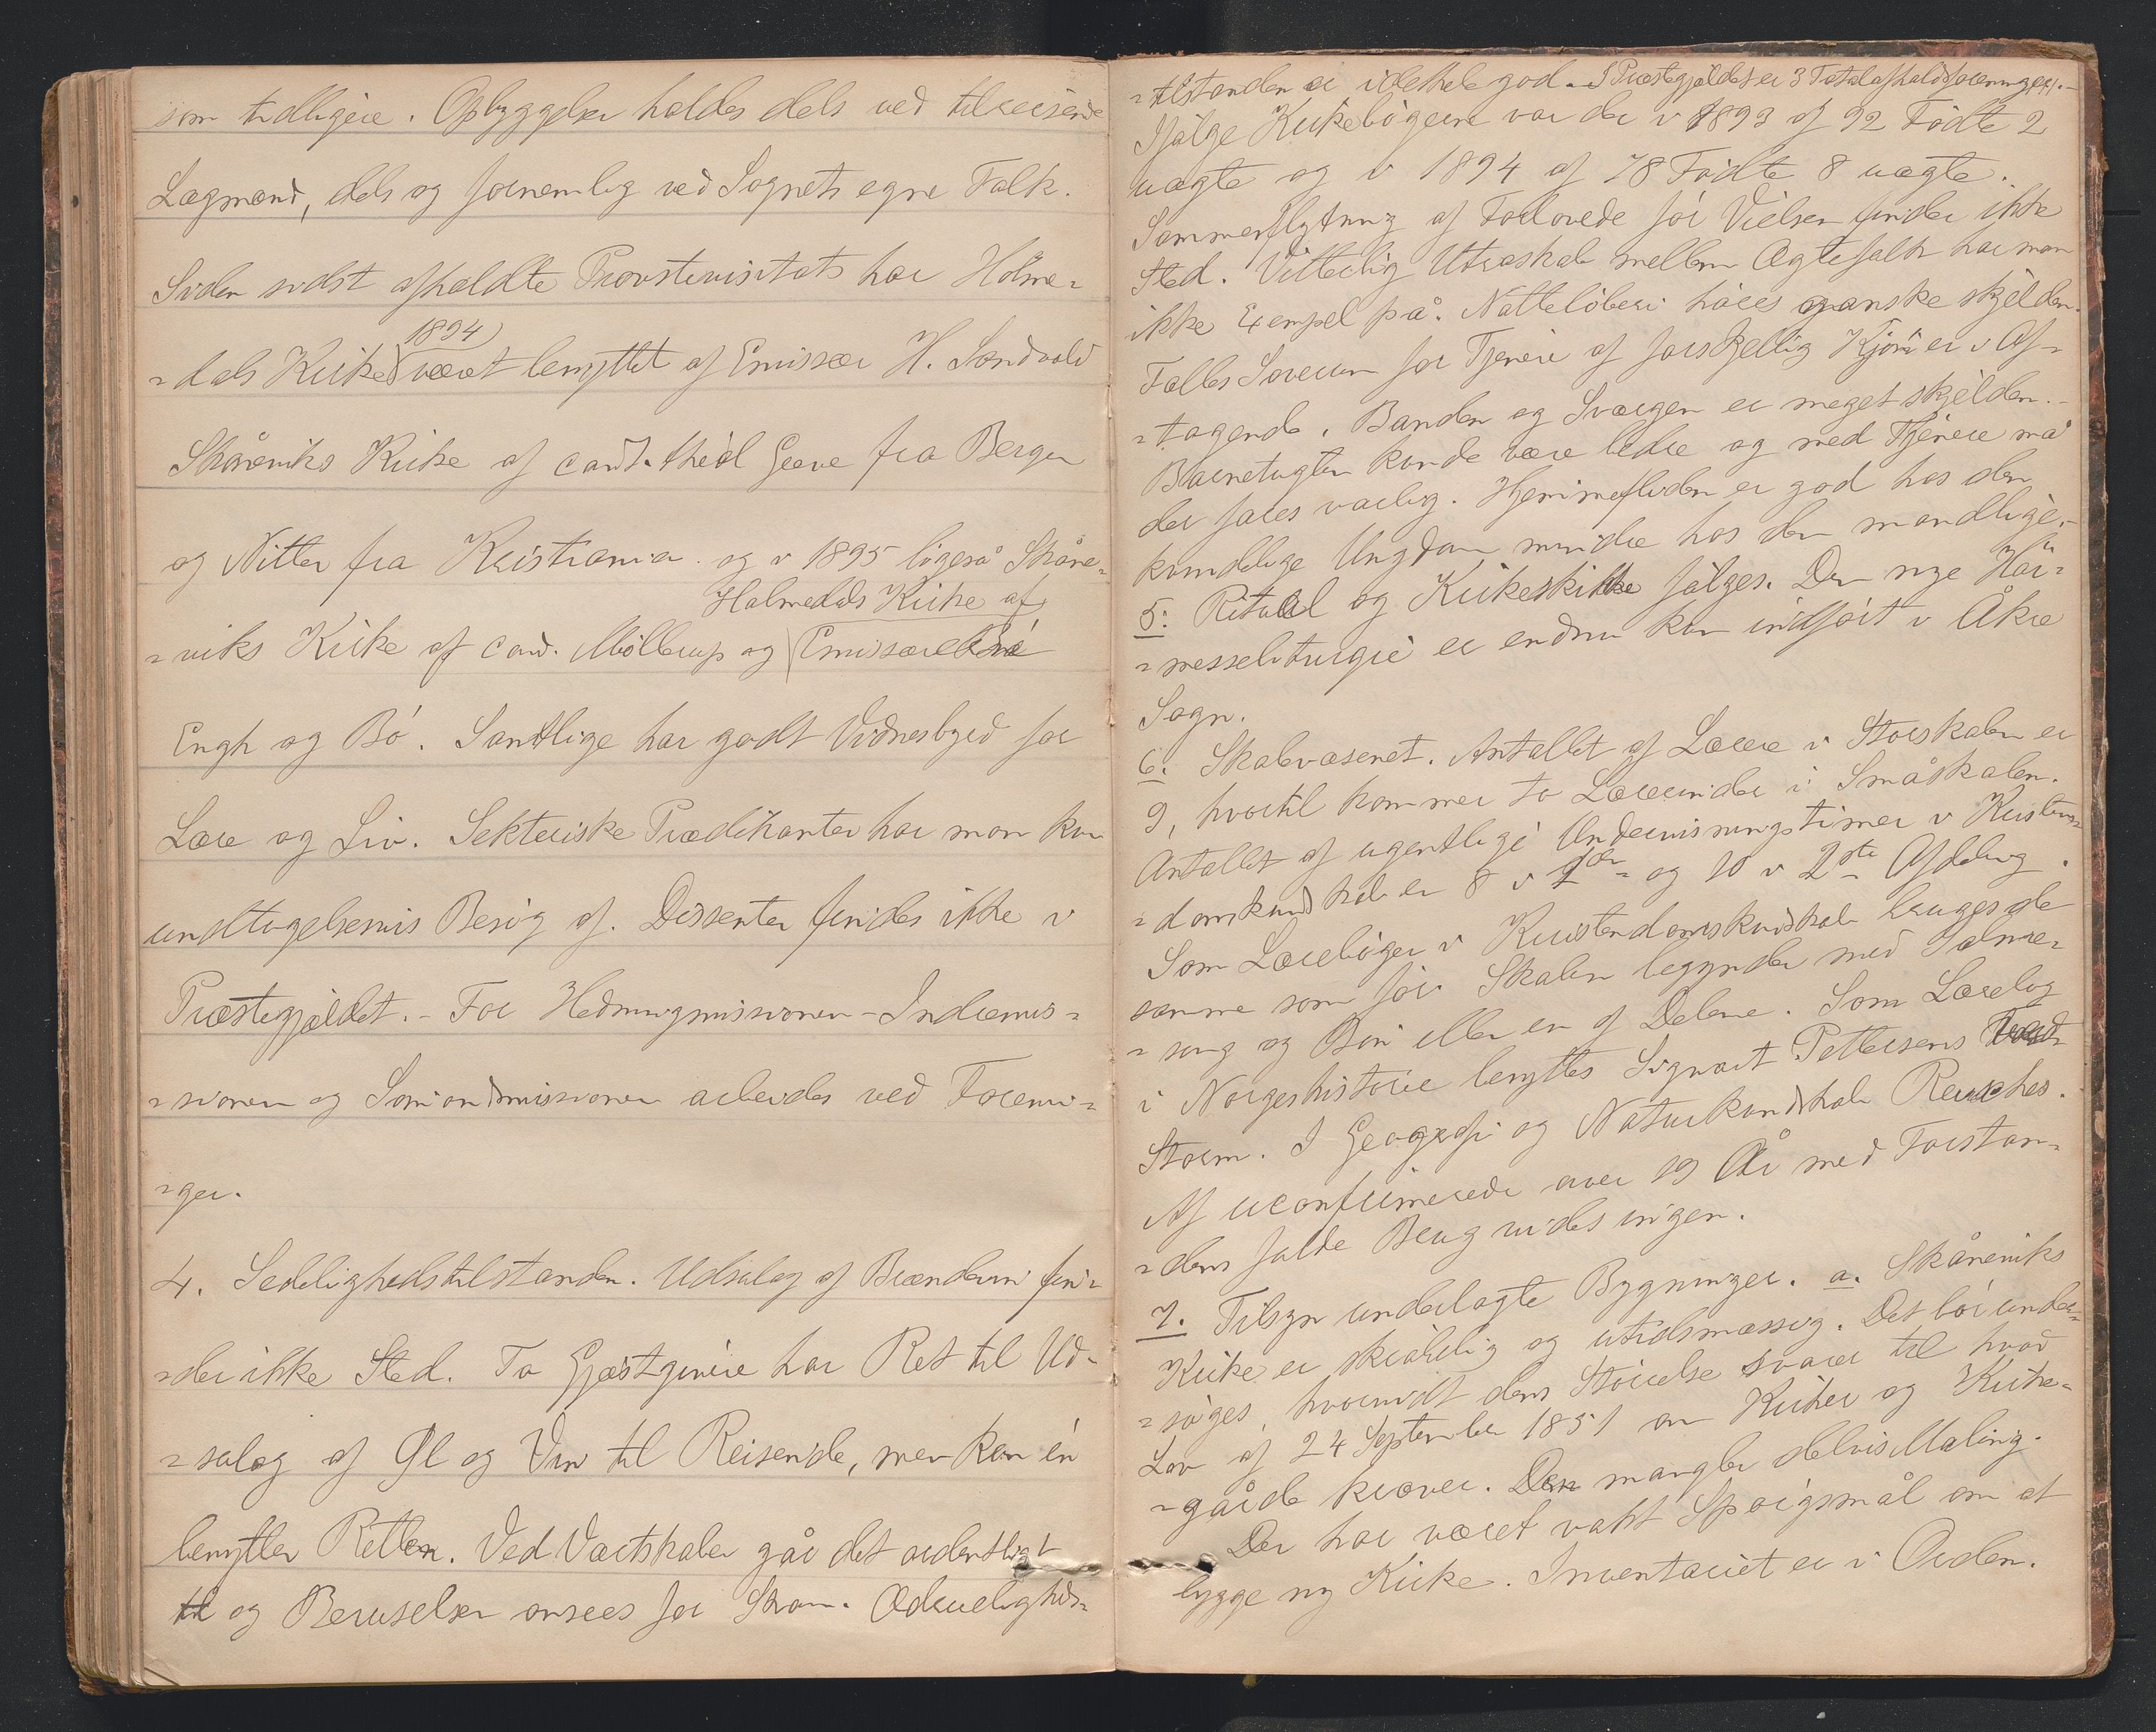 som tidligere. Opbyggelser holdes dels ved tilreisende
Lægmænd, dels og fornemlig ved Sognets egne Folk.
Siden sidst afholdte Provstevisitats har Holme-
1894
-dals Kirke været benyttet af Emissær H. Sandvold
Skåneviks Kirke af cand. theol Greve fra Bergen
og Nitter fra Kristiania og i 1895 ligeså Skåne-
Holmedals Kirke af
-viks Kirke af cand. Möllerup og Emissærerne
Engh og Bö. Samtlige har godt Vidnesbyrd for
Lære og Liv. Sekteriske Prædikanter har man kun
undtagelsesvis Besög af. Dissenter findes ikke i
Præstegjældet. - For Hedningmissionen - Indremis-
-sionen og Sömandsmissionen arbeides ved Forenin-
-ger.
4. Sedelighedstilstanden. Udsalg af Brændevin fin-
-der ikke Sted. To Gjæstgivere har Ret til Ud-
-salg af Øl og Vin til Reisende, men kun én
benytter Retten. Ved Værtskaber går det ordentligt
til og Beruselser ansees for Skam. Ædrueligheds-
-tilstanden er idethele god. I Præstegjældet er 3 Totalafholdsforeninger.
Ifölge Kirkebögerne var der i 1893 af 92 Födte 2
uægte og i 1894 af 78 Födte 8 uægte.
Sammenflytning af Forlovede för Vielsen finder ikke
Sted. Vitterlig Utroskab mellem Ægtefolk har man
ikke Exempel på. Natteløberi höres ganske skjelden.
Fælles Soverum for Tjenere af forskjellig Kjön er i Af-
-tagende. Banden og Sværgen er meget skjelden.
Barnetugten kunde være bedre og med Tjenere må
der fares varlig. Hjemmefliden er god hos den
kvindelige Ungdom mindre hos den mandlige.
5. Ritual og Kirkeskikke fölges. Den nye Höi-
-messeliturgie er endnu kun indfört i Åkre
Sogn.
6. Skolevæsenet. Antallet af Lærere i Storskolen er
9, hvortil kommer to Lærerinder i Småskolen.
Antallet af ugentlige Undervisningstimer i Kristen-
-domskundskab er 8 i 1ste og 10 i 2den Afdeling.
Som Lærebøger i Kristendomskundskab bruges de
samme som för. Skolen begynder med Salme-
-sang og Bön eller en af Delene. Som Lærebog
i Norgeshistorie benyttes Sigvart Pettersens
Storm. I Geografi og Naturkundskab Reusches.
Af uconfirmerede over 19 År med Forstan-
-dens fulde Brug vides ingen.
7. Tilsyn underlagte Bygninger. a. Skåneviks
Kirke er skröbelig og utidsmæssig. Det bör under-
-söges, hvorvidt dens Störrelse svarer til hvad
Lov af 24 September 1851 om Kirker og Kirke-
-gårde kræver. Den mangler delvis Maling.
Der har været vakt Spörgsmål om at
bygge ny Kirke. Inventariet er i Orden.